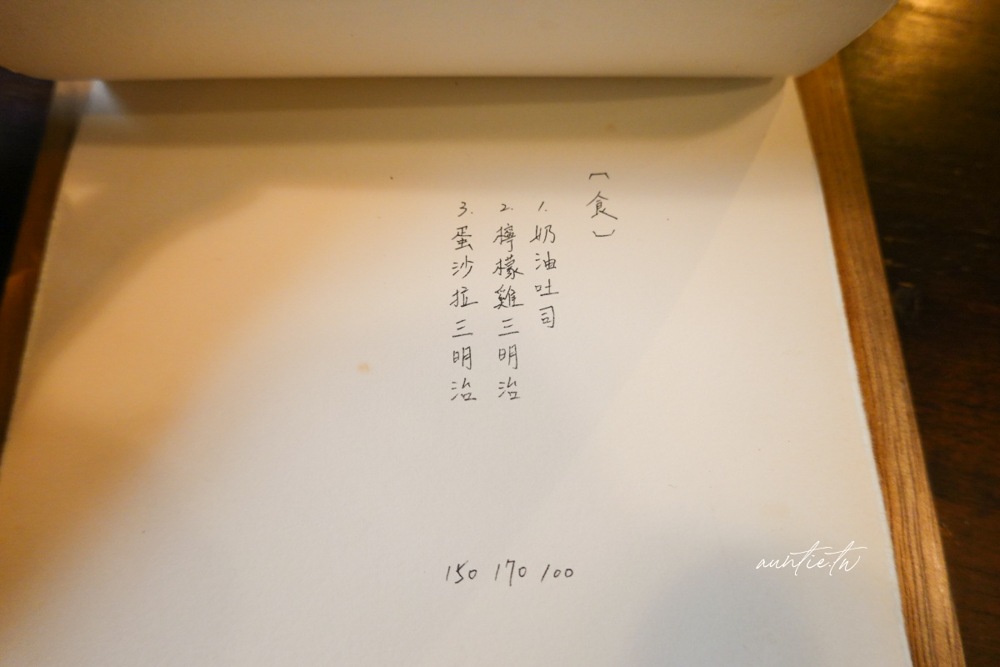 〔食〕
1. 奶油吐司
2. 檸檬雞三明治
3. 蛋沙拉三明治
150 170 100
auntie.tw